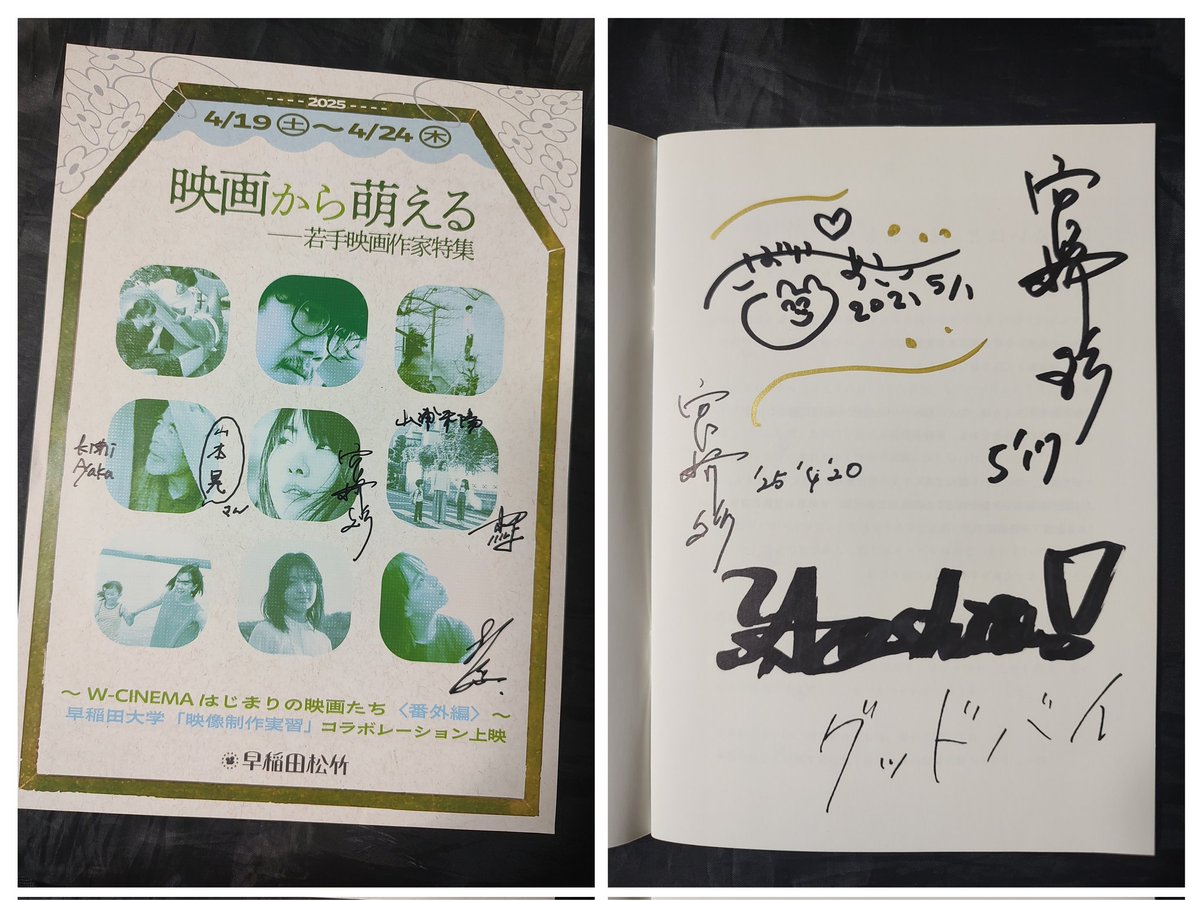 2025
4/19 土 〜 4/24 木
映画から萌える
──若手映画作家特集
山浦未陽
Kimi
Ayaka
山本晃
さん
宮崎彩
〜 W-CINEMA はじまりの映画たち〈番外編〉〜
早稲田大学「映像制作実習」コラボレーション上映
早稲田松竹
宮崎彩
2021 5/1
5/17
宮崎彩
'25 '4 '20
グッドバイ